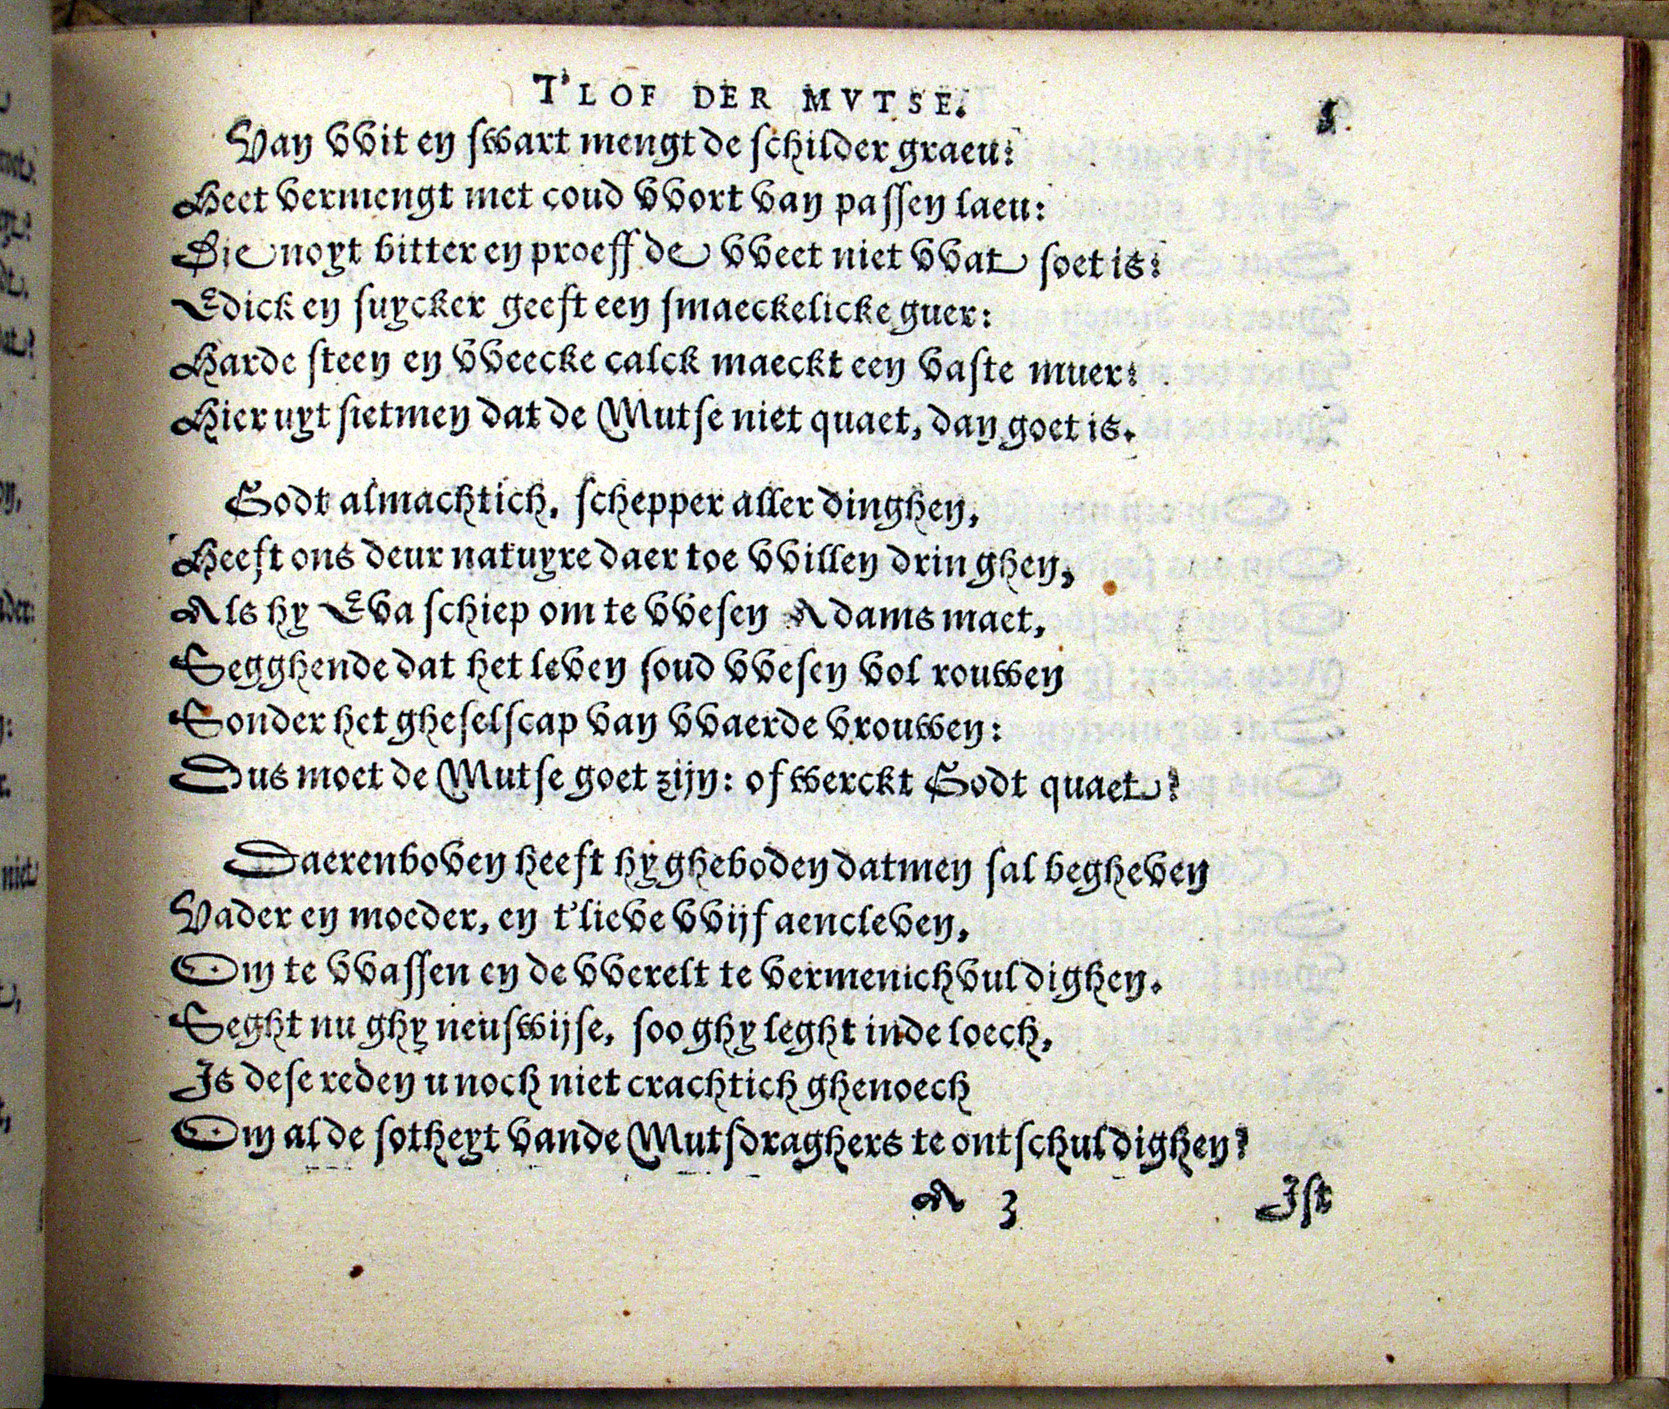 T'LOF DER MVTSE. 5.
Van VVit en swart mengt de schilder graeu:
Heet vermengt met coud VVort van passen laeu:
Die noyt bitter en proefde VVeet niet VVat soet is:
Edick en suycker geeft een smaeckelicke guer:
Harde steen en VVeecke calck maeckt een vaste muer:
Hier uyt sietmen dat de Mutse niet quaet, dan goet is.
Godt almachtich, schepper aller dinghen,
Heeft ons deur natuyre daer toe VVillen dringhen,
Als hy Eva schiep om te VVesen Adams maet,
Segghende dat het leven soud VVesen vol rouwen
Sonder het gheselscap van VVaerde vrouwen:
Dus moet de Mutse goet zijn: of werckt Godt quaet?
Daerenboven heeft hy gheboden datmen sal begheven
Vader en moeder, en t'lieve VVijf aencleven,
Om te VVassen en de VVerelt te vermenichvuldighen.
Seght nu ghy neuswijse, soo ghy leght inde loech,
Is dese reden u noch niet crachtich ghenoech
Om al de sotheyt vande Mutsdraghers te ontschuldighen?
A 3 Ist